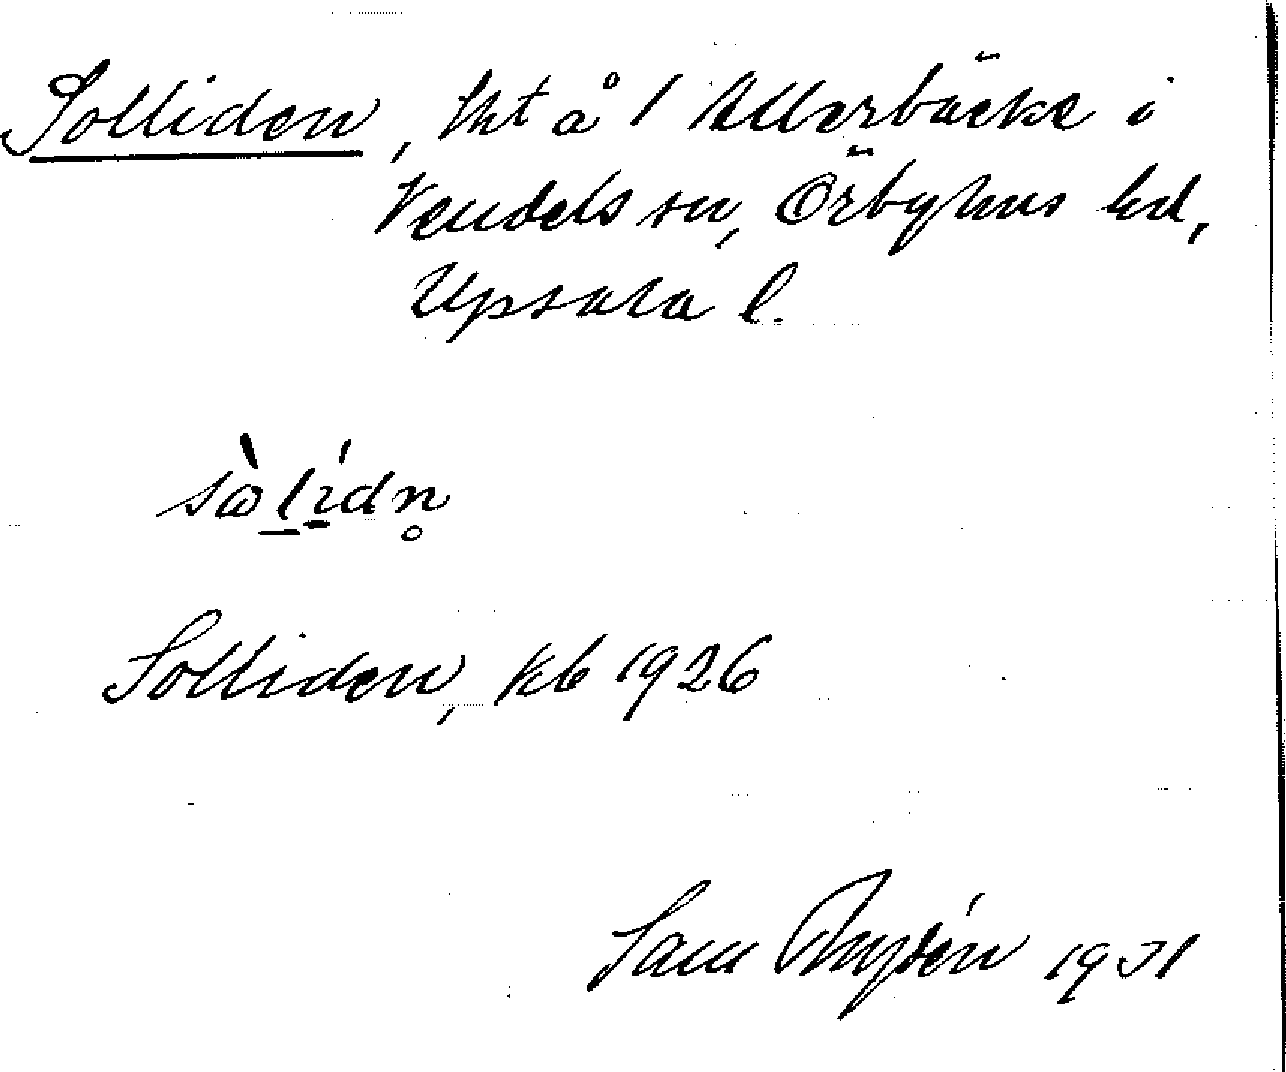 Solliden, lht å 1 Ullerbäcke i
Vendels sn, Örbyhus hd,
Upsala l.
Solliden, kb 1926
Sam Rydén 1931